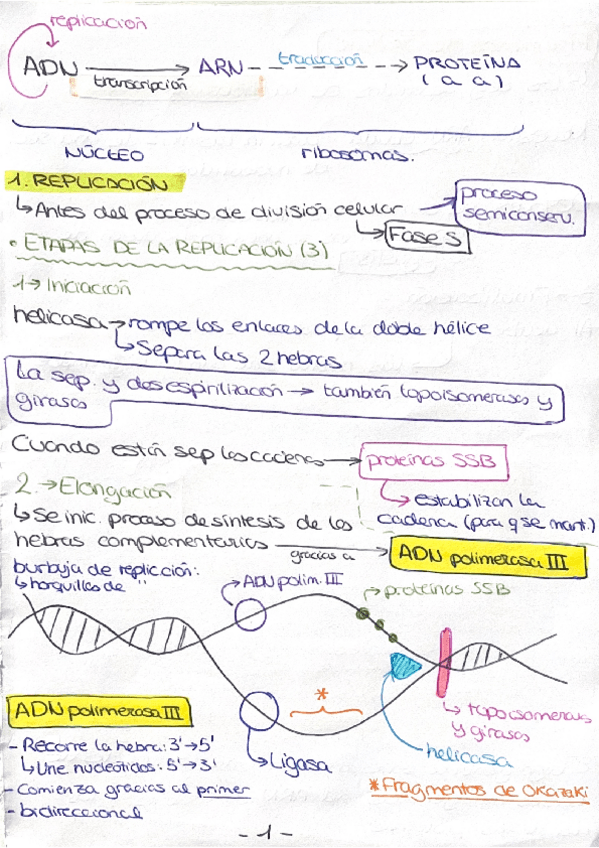 replicación
ADN → ARN - - traducción - - → PROTEÍNA
transcripción
(a a)
NÚCLEO
ribosomas.
1. REPLICACIÓN
↳ Antes del proceso de división celular → proceso semiconserv.
↳ Fase S
• ETAPAS DE LA REPLICACIÓN (3)
1→ Iniciación
helicasa → rompe los enlaces de la doble hélice
↳ Separa las 2 hebras
La sep. y desespirilización → también topoisomerasas y
girasas
Cuando están sep las cadenas → proteínas SSB
↳ estabilizan la
cadena (para q se mant.)
2.→ Elongación
↳ Se inic. proceso de síntesis de las
hebras complementarias gracias a → ADN polimerasa III
burbuja de replicción:
↳ horquillas de "
→ ADN polim. III
→ proteínas SSB
*
↳ topoisomerasas
y girasas
helicasa
→ Ligasa
* Fragmentos de Okazaki
ADN polimerasa III
- Recorre la hebra: 3' → 5'
↳ Une nucleótidos: 5' → 3'
- Comienza gracias al primer
- bidireccional
- 1 -